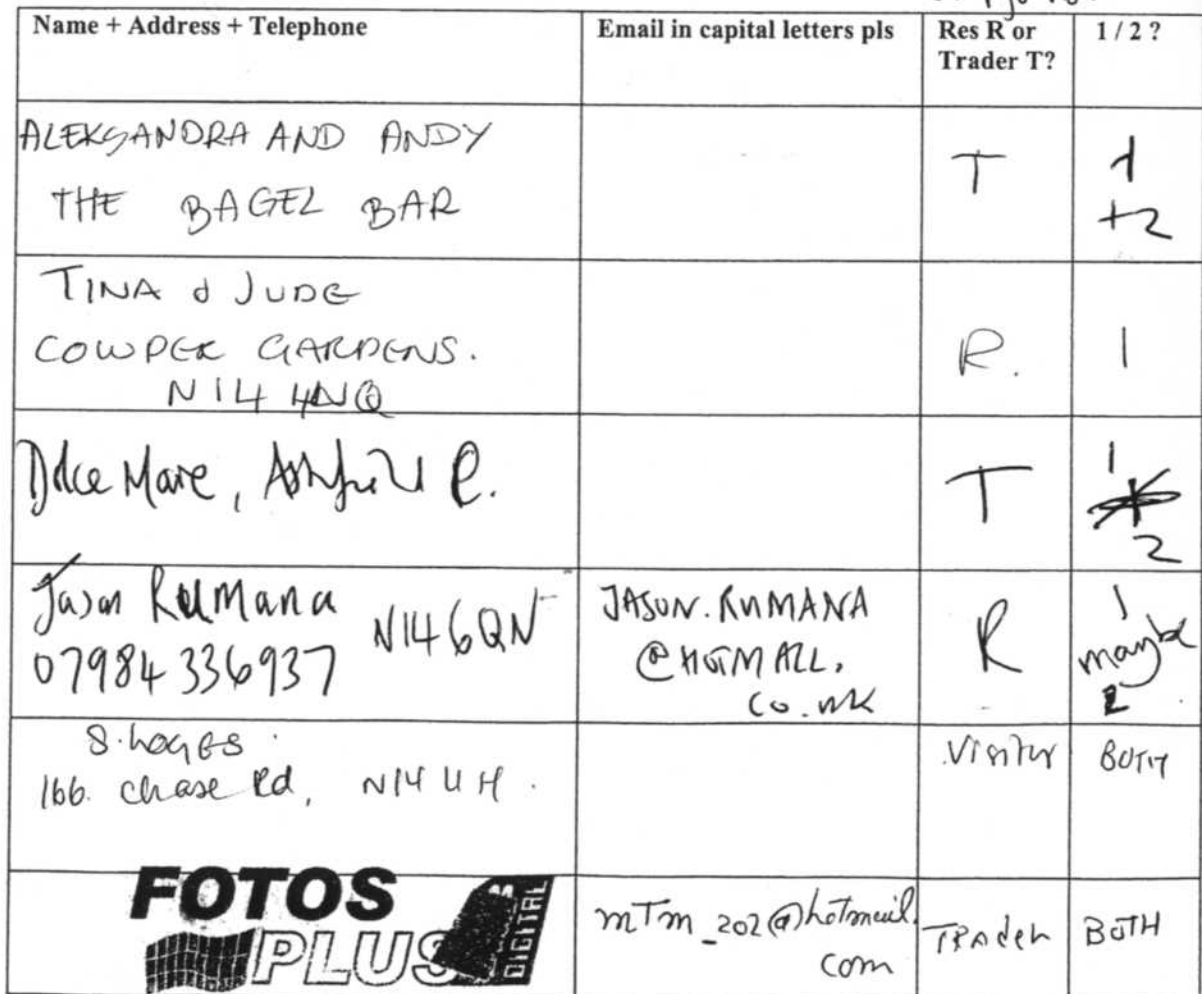 Name + Address + Telephone
Email in capital letters pls
Res R or
Trader T?
1 / 2 ?
ALEKSANDRA AND ANDY
THE BAGEL BAR
T
1
+2
TINA & JUDE
COWPER GARDENS.
N14 4NQ
R.
1
Dolce Mare,
T
1
2
Jason Rumana
07984 336937
N14 6QN
JASON.RUMANA
@HOTMAIL.
co.uk
R
1
maybe
2
166. Chase Rd, N14
Visitor
BOTH
FOTOS
PLUS
DIGITAL
mTm_202@hotmail.
com
TRADER
BOTH